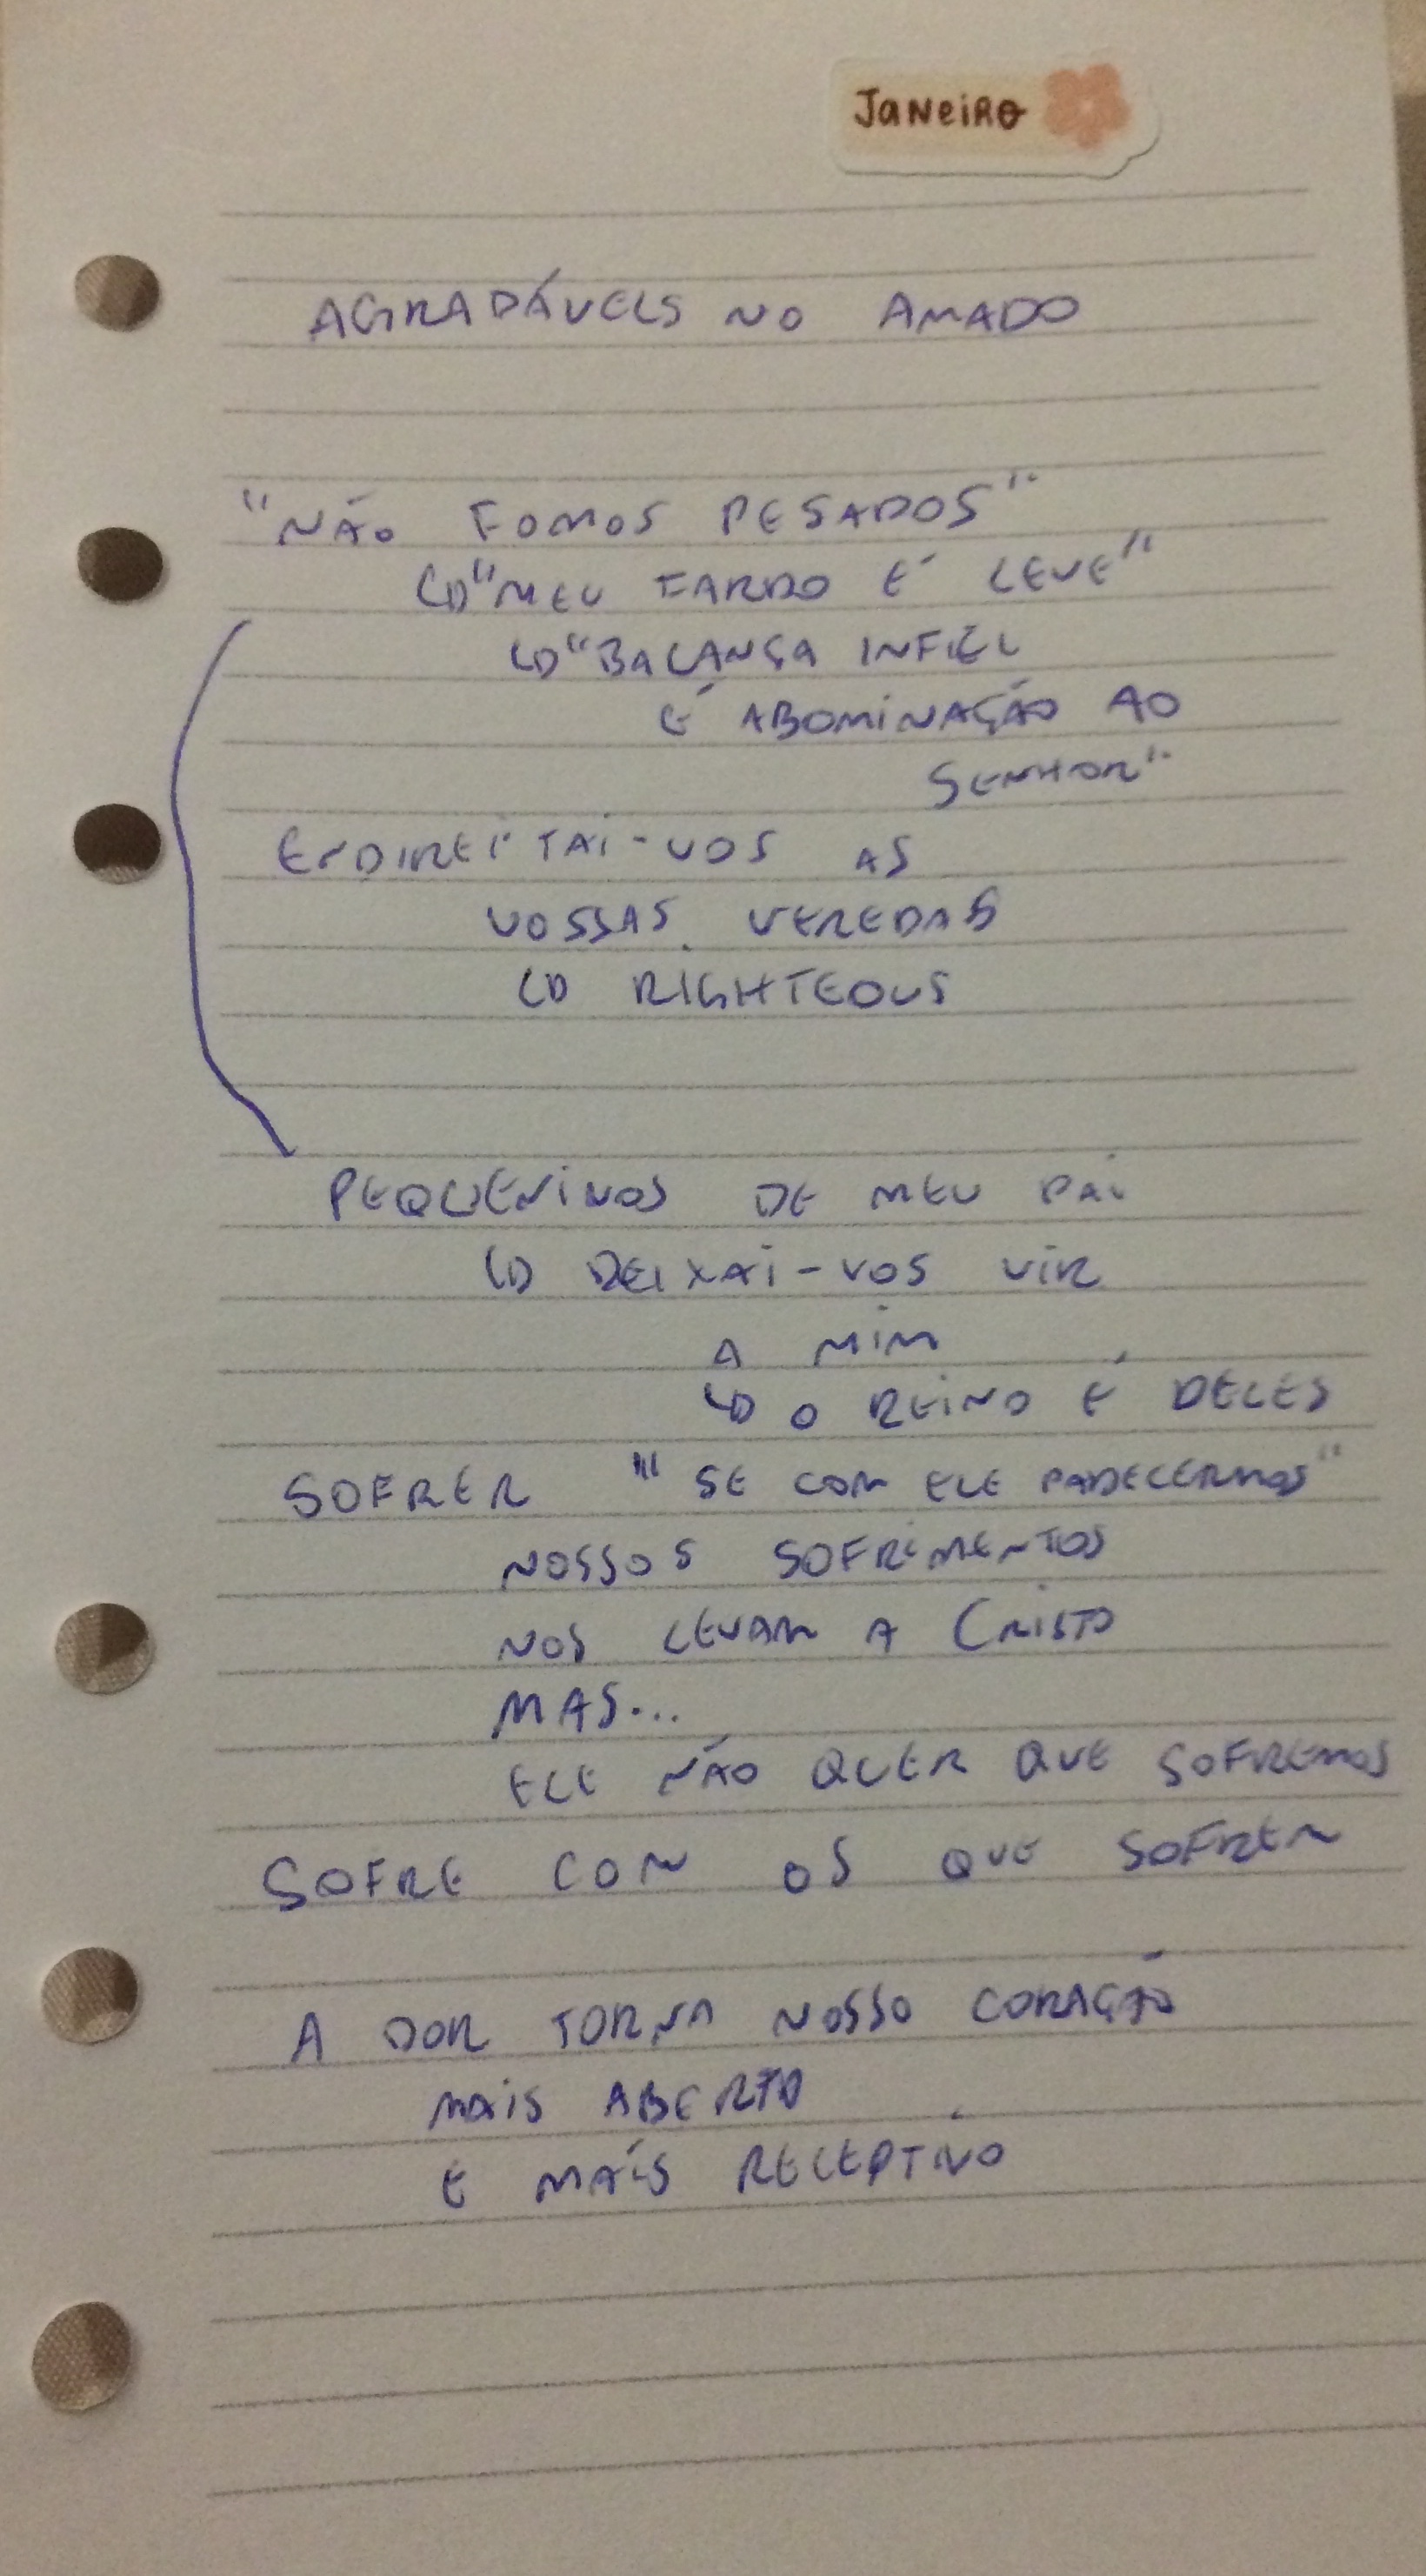 Janeiro
AGRADÁVEIS NO AMADO
"NÃO FOMOS PESADOS"
↳ "MEU FARDO É LEVE"
↳ "BALANÇA INFIEL
É ABOMINAÇÃO AO
SENHOR"
ENDIREITAI-VOS AS
VOSSAS VEREDAS
↳ RIGHTEOUS
PEQUENINOS DE MEU PAI
↳ DEIXAI-VOS VIR
A MIM
↳ O REINO É DELES
SOFRER "SE COM ELE PADECERMOS"
NOSSOS SOFRIMENTOS
NOS LEVAM A CRISTO
MAS...
ELE NÃO QUER QUE SOFREMOS
SOFRE COM OS QUE SOFREM
A DOR TORNA NOSSO CORAÇÃO
MAIS ABERTO
E MAIS RECEPTIVO